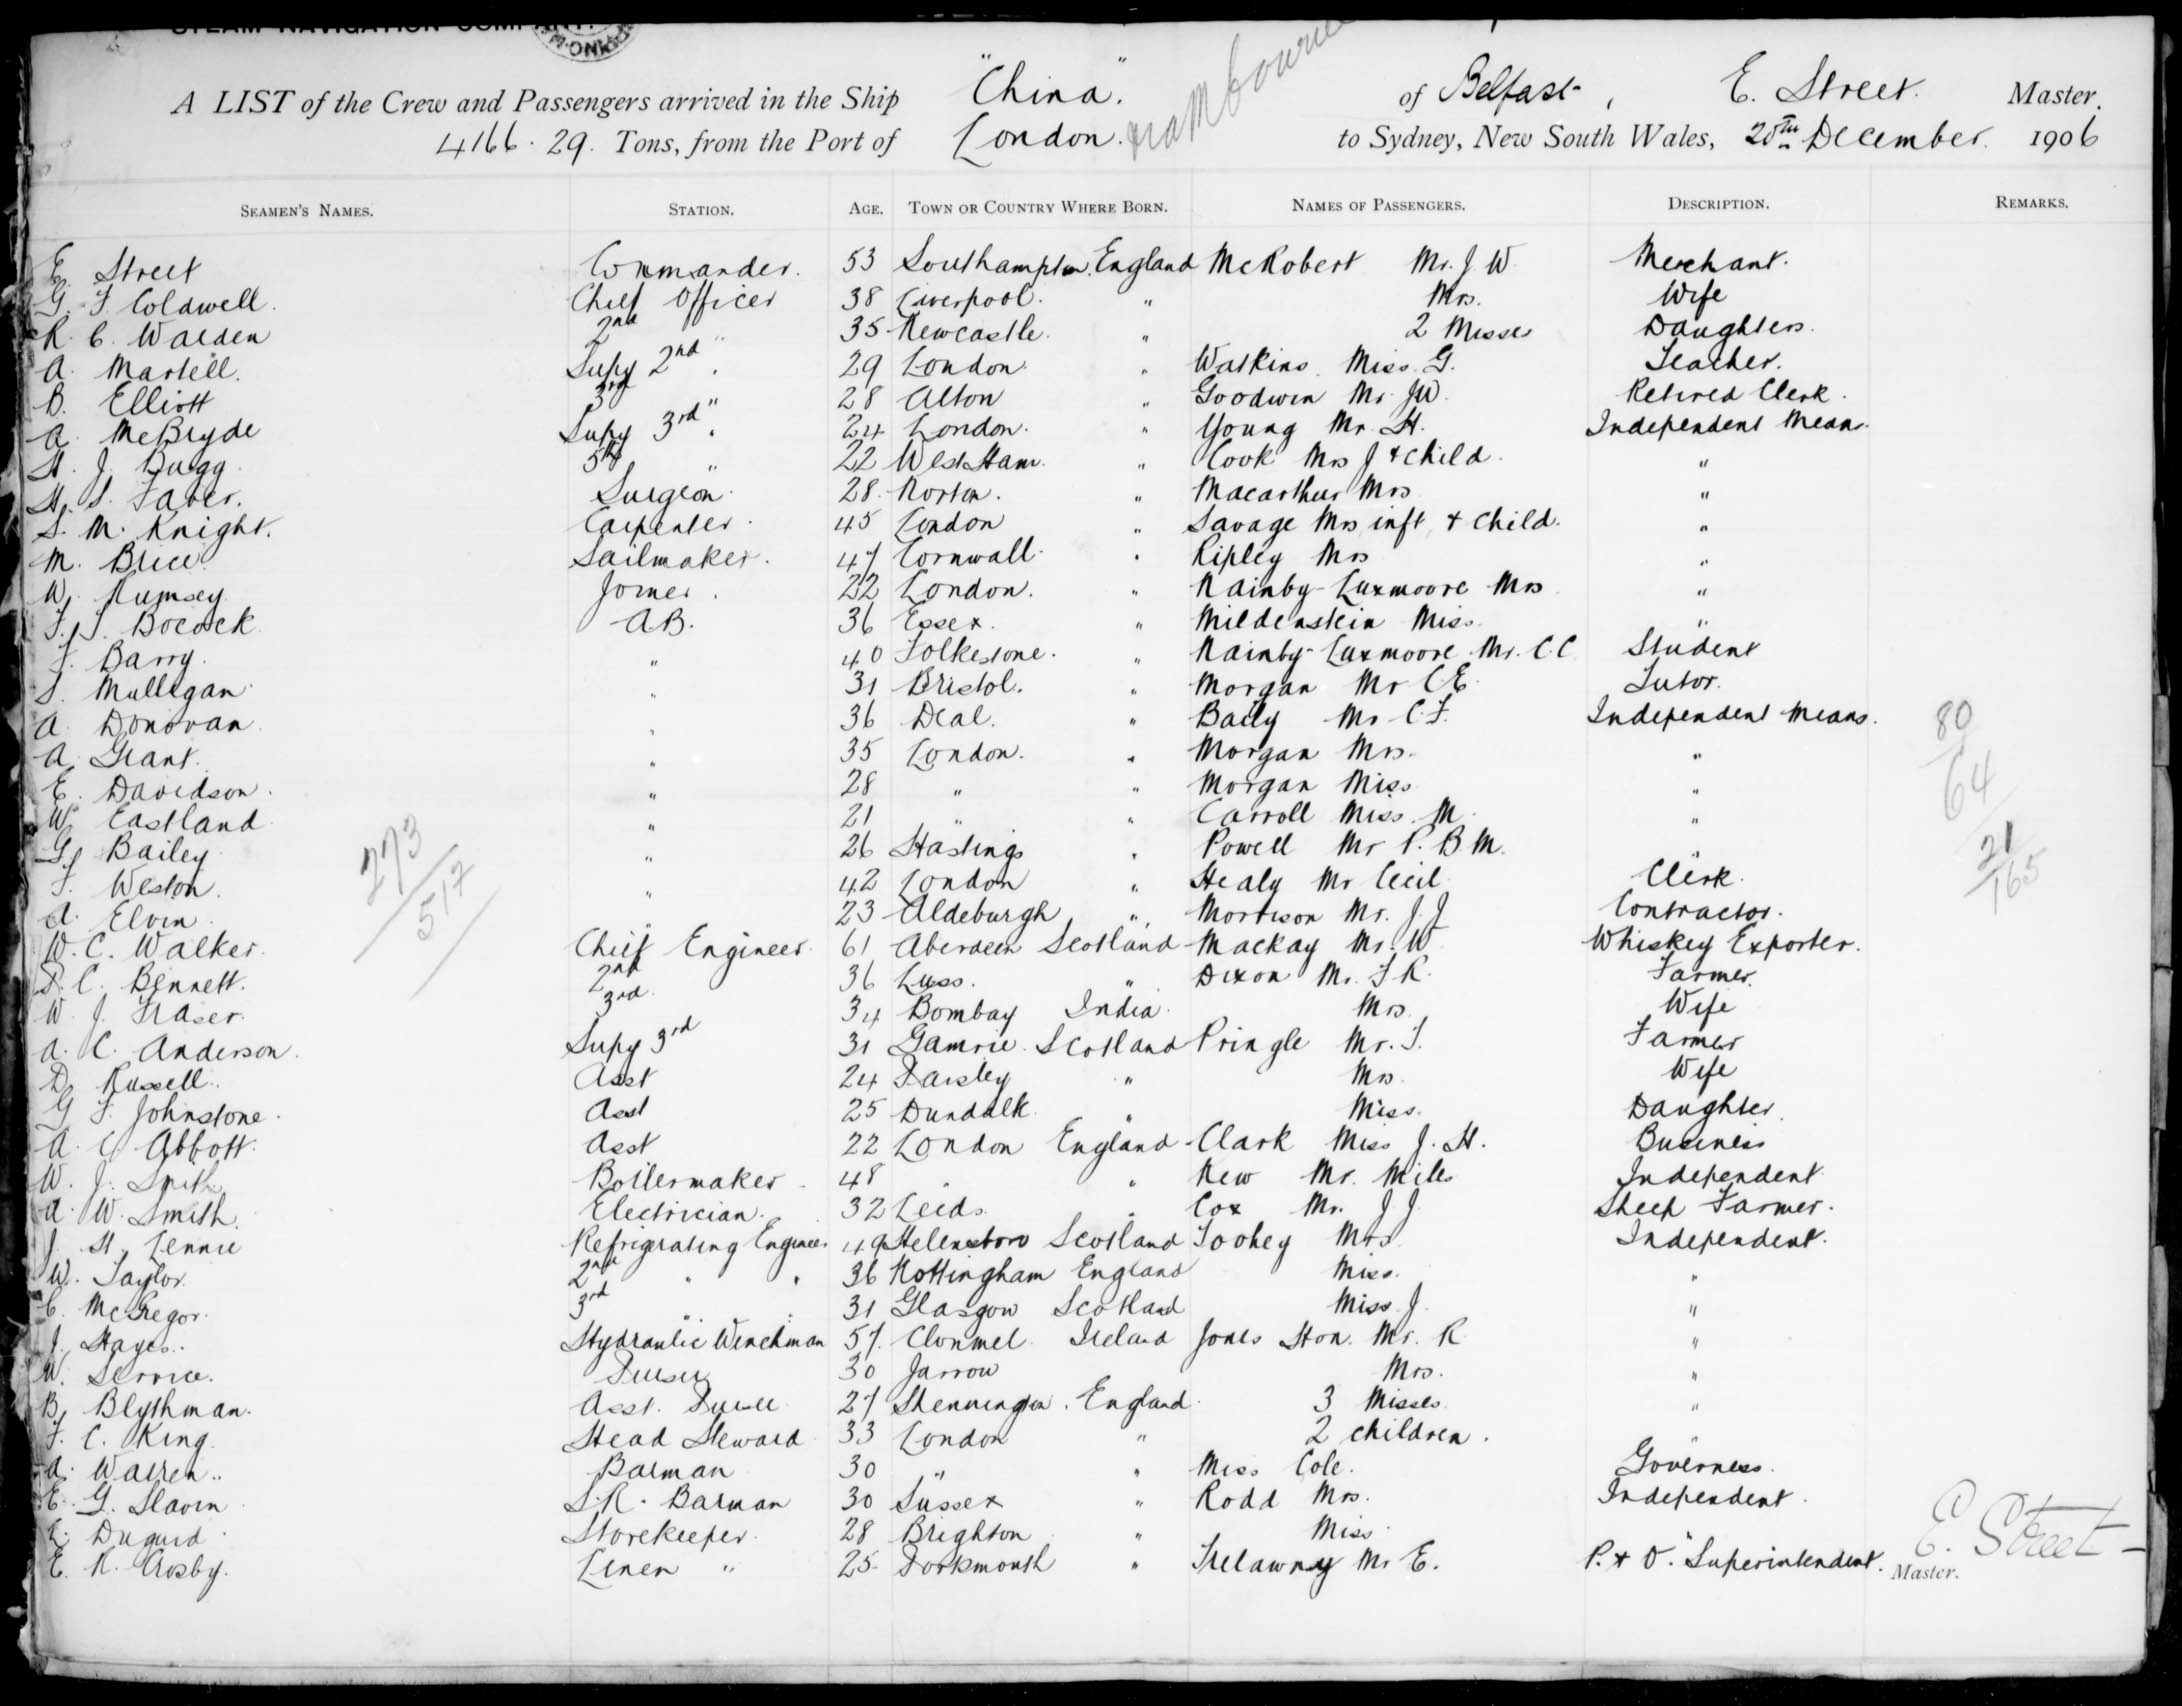 STEAM NAVIGATION COMPANY.
A LIST of the Crew and Passengers arrived in the Ship "China". of Belfast, E. Street. Master.
4166.29. Tons, from the Port of London. to Sydney, New South Wales, 20th December. 1906
SEAMEN'S NAMES. STATION. AGE. TOWN OR COUNTRY WHERE BORN. NAMES OF PASSENGERS. DESCRIPTION. REMARKS.
E. Street Commander. 53 Southampton. England McRobert Mr. J. W. Merchant.
G. F. Coldwell. Chief Officer 38 Liverpool. " Mrs. Wife
R. C. Warden 2nd " 35 Newcastle. " 2 Misses Daughters.
A. Martell. Supy 2nd " 29 London " Watkins Miss. G. Teacher.
B. Elliott 3rd " 28 Alton " Goodwin Mr. J W. Retired Clerk.
A. McBryde Supy 3rd " 24 London. " Young Mr. H. Independent Means.
H. J. Bugg. 5th " 22 West Ham. " Cook Mrs J & Child. "
H. S. Faber. Surgeon. 28. Norton. " Macarthur Mrs "
S. M. Knight. Carpenter. 45 London " Savage Mrs inft, & Child. "
M. Brice. Sailmaker. 47 Cornwall. " Ripley Mrs "
W. Rumsey. Joiner. 22 London. " Rainby-Luxmoore Mrs "
F. J. Bocock A.B. 36 Essex. " Mildenstein Miss. "
J. Barry. " 40 Folkestone. " Rainby-Luxmoore Mr. C.C. Student
S. Mulligan " 31 Bristol. " Morgan Mr C E. Tutor.
A. Donovan. " 36 Deal. " Baily Mr C. F. Independent Means.
A. Grant. " 35 London. " Morgan Mrs. "
E. Davidson. " 28 " " Morgan Miss "
W. Eastland. " 21 " " Carroll Miss. M. "
G. Bailey " 26 Hastings " Powell Mr P. B. M. "
F. Weston. " 42 London " Healy Mr Cecil. Clerk.
A. Elvin. " 23 Aldeburgh " Morrison Mr. J. J. Contractor.
W. C. Walker. Chief Engineer. 61 Aberdeen Scotland Mackay Mr. W. Whiskey Exporter.
D. C. Bennett. 2nd 36 Luss. " Dixon Mr. F R. Farmer.
W. J. Fraser. 3rd. 34 Bombay India. Mrs. Wife
A. C. Anderson. Supy 3rd 31 Gamrie. Scotland Pringle Mr. T. Farmer
D. Russell. Asst 24 Paisley " Mrs. Wife
G F. Johnstone. Asst 25 Dundalk " Miss. Daughter.
A. C. Abbott. Asst 22 London England Clark Miss J. H. Business
W. J. Smith Boilermaker. 48 " " New Mr. Miles Independent
A. W. Smith. Electrician. 32 Leeds. " Cox Mr. J J. Sheep Farmer.
J. H. Lennie Refrigerating Engineer 49 Helensboro Scotland Toohey Mrs Independent.
W. Taylor. 2nd " " 36 Nottingham England Miss. "
C. McGregor. 3rd " " 31 Glasgow Scotland Miss J. "
J. Hayes. Hydraulic Winchman 57. Clonmel. Ireland Jones Hon. Mr. R "
W. Service. Purser 30 Jarrow Mrs. "
B. Blythman. Asst. Purser 27 England. 3 Misses. "
F. C. King. Head Steward 33 London " 2 children. "
A. Warren. Barman 30 " " Miss Cole. Governess.
E. G. Slavin. S.R. Barman 30 Sussex " Rodd Mrs. Independent.
E. Duguid. Storekeeper. 28 Brighton " Miss "
E. R. Crosby. Linen " 25 Portsmouth " Trelawny Mr E. P. & O. Superintendent.
273
517
80
64
21
165
E. Street
Master.